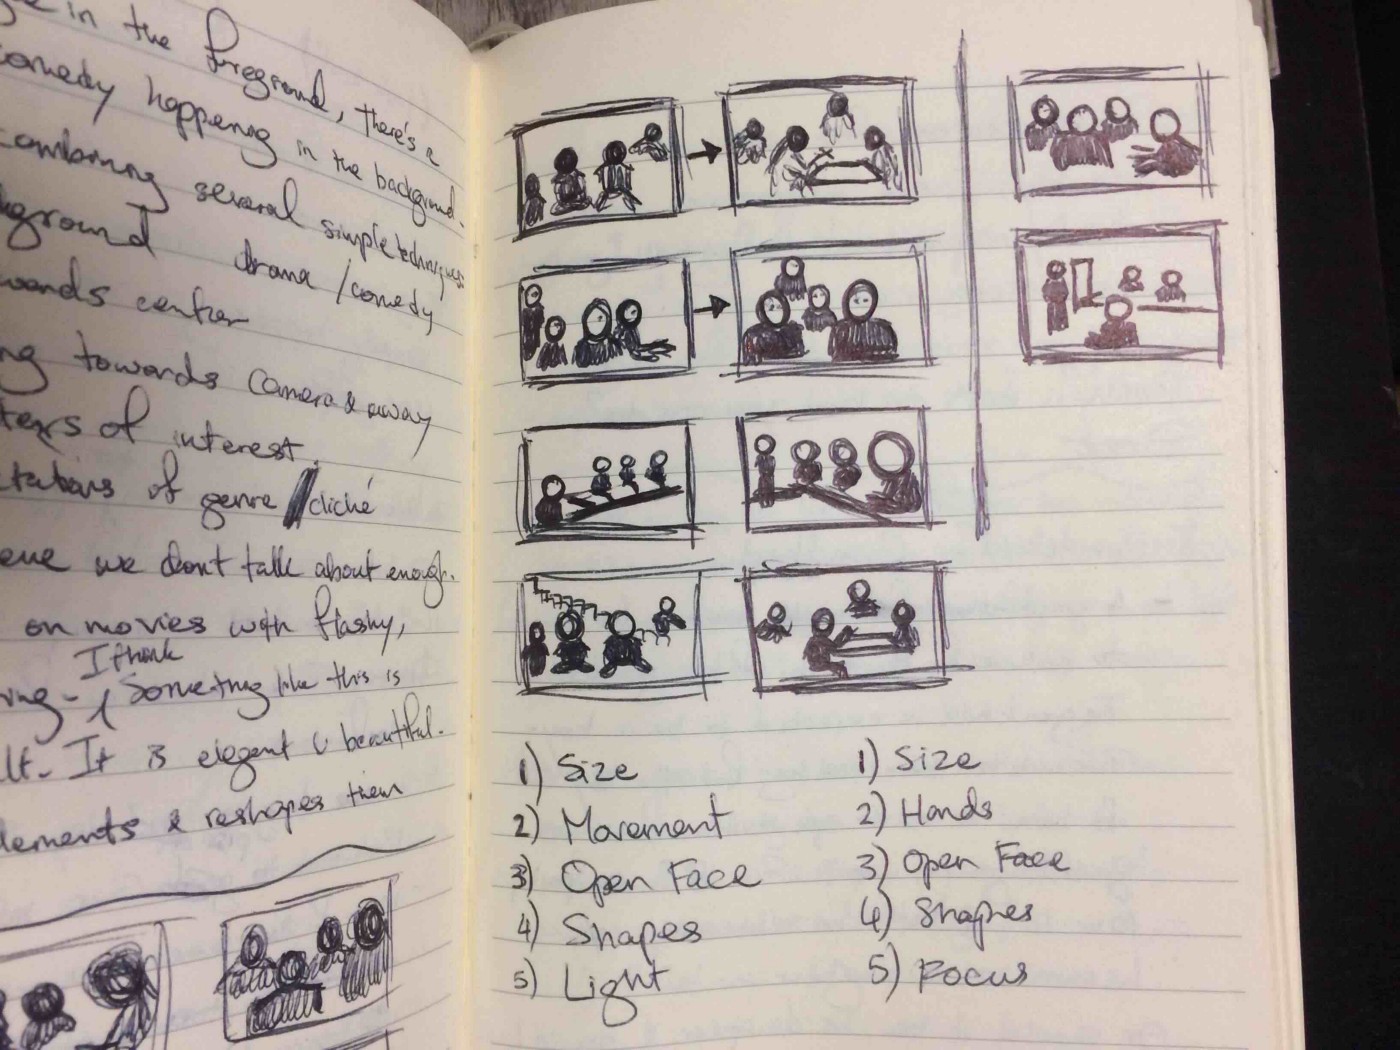 in the foreground, there's a
comedy happening in the background.
combining several simple techniques
drama / comedy
wards center
ng towards camera & away
ters of interest.
tations of genre / cliché
we don't talk about enough.
on movies with flashy,
I think
Something like this is
It is elegant & beautiful.
lements & reshapes them
1) Size
2) Movement
3) Open Face
4) Shapes
5) Light
1) Size
2) Hands
3) Open Face
4) Shapes
5) Focus